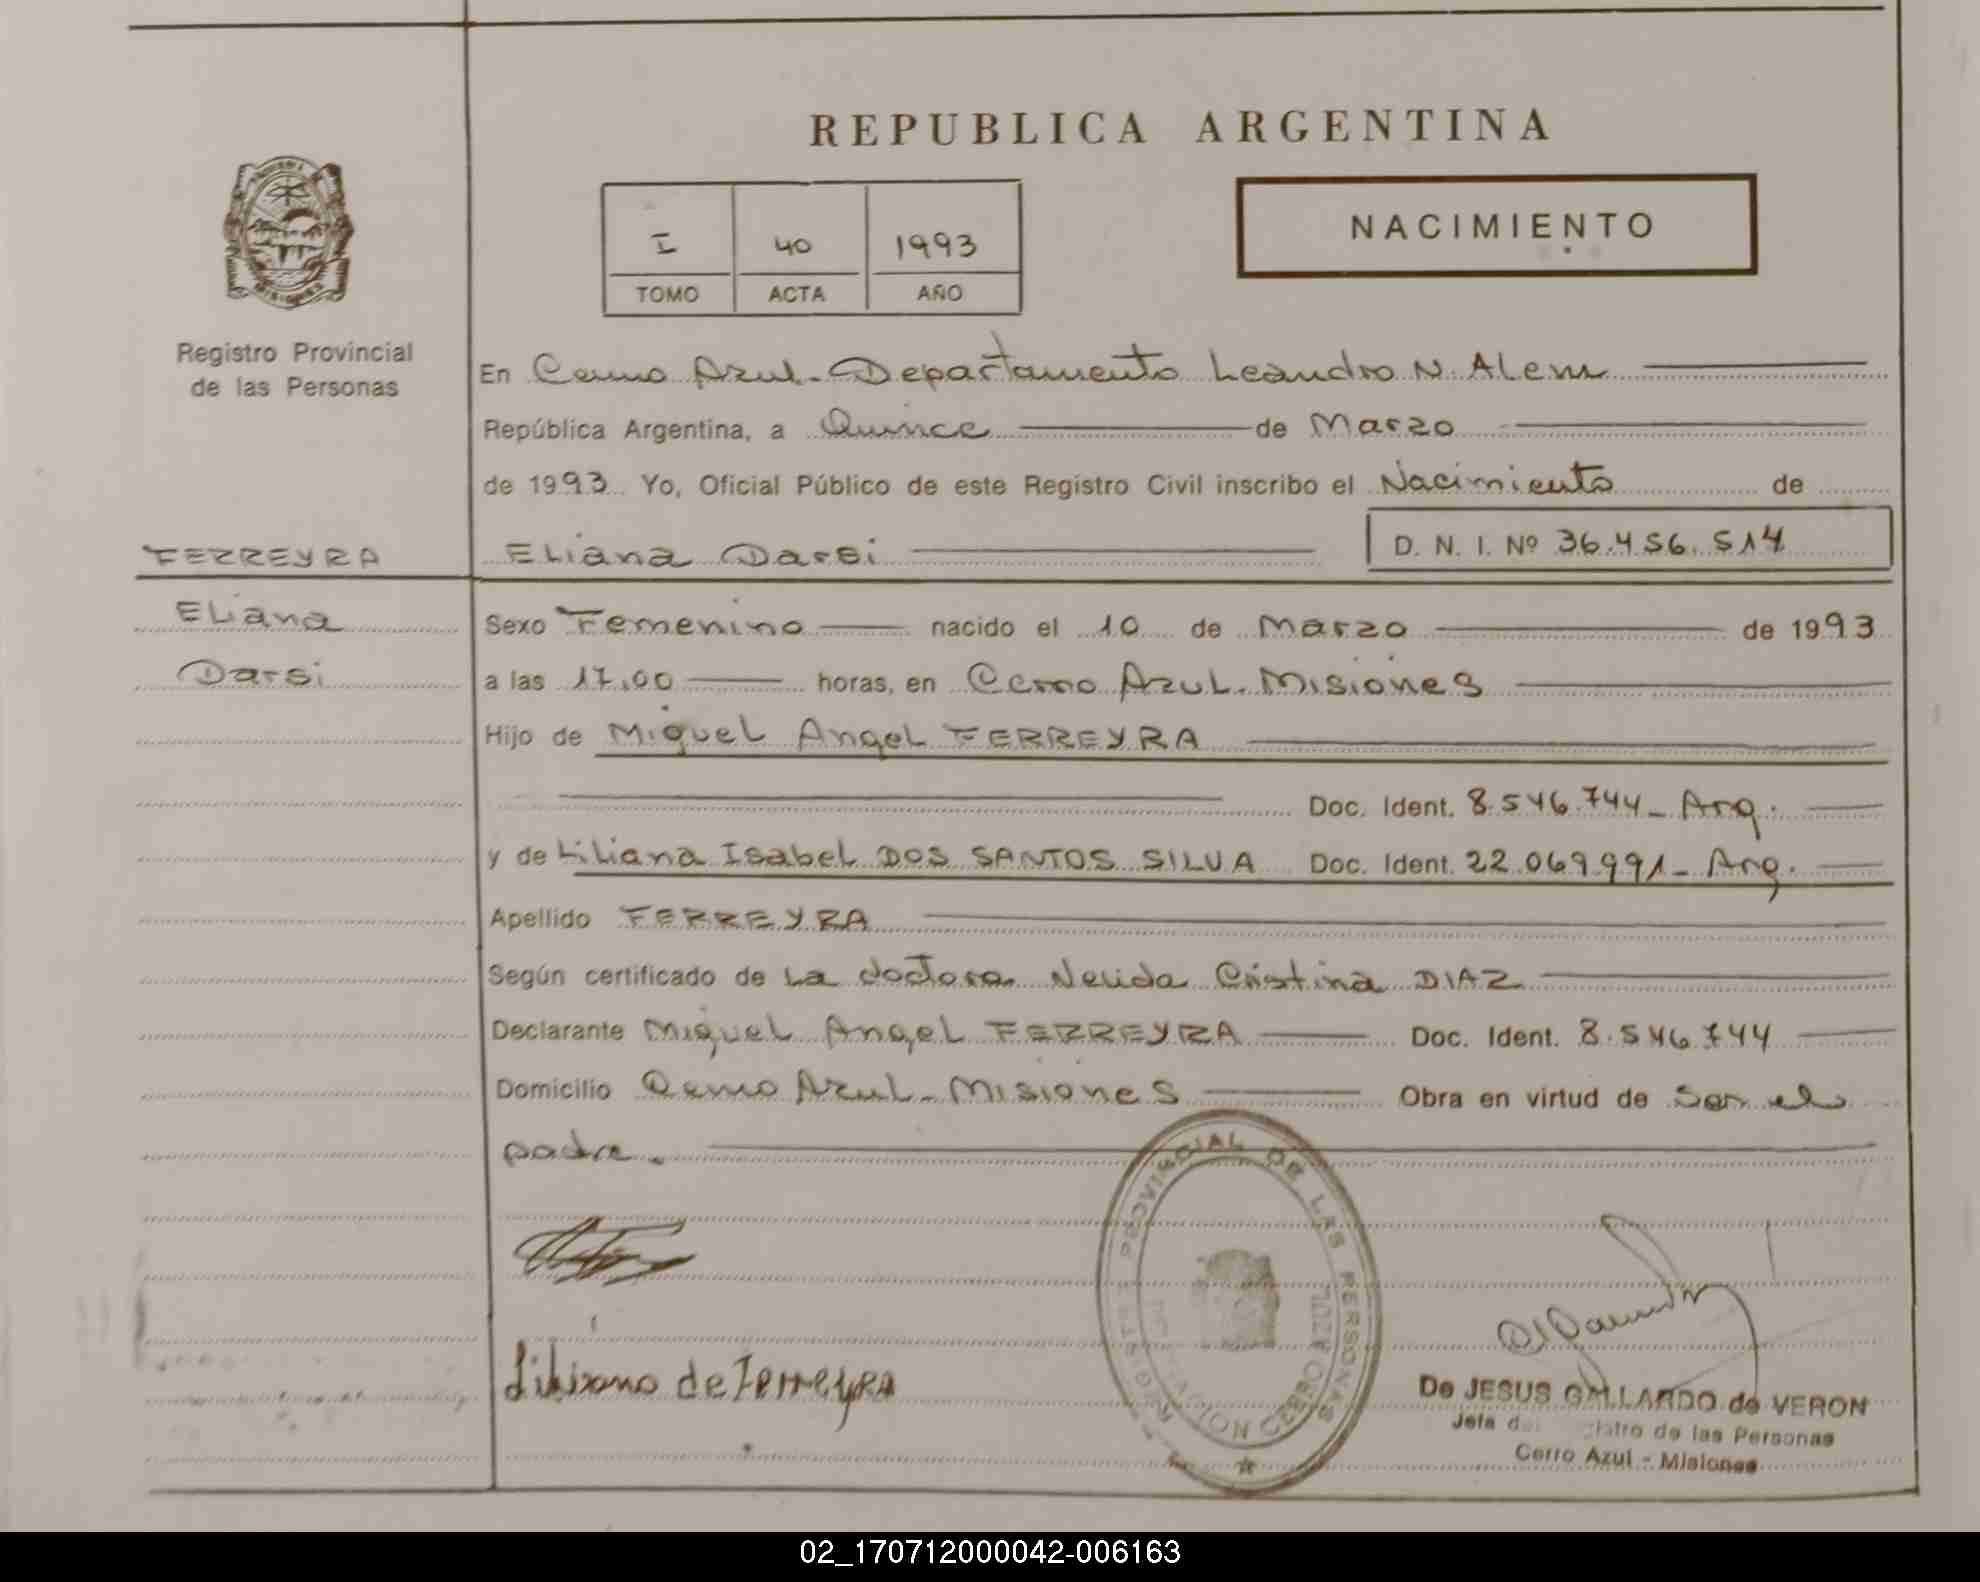 REPUBLICA ARGENTINA
NACIMIENTO
I 40 1993
TOMO ACTA AÑO
MISIONES
Registro Provincial
de las Personas
En Cerro Azul - Departamento Leandro N. Alem
República Argentina, a Quince de Marzo
de 1993 Yo, Oficial Público de este Registro Civil inscribo el Nacimiento de
FERREYRA Eliana Darsi D. N. I. Nº 36.456.514
Eliana
Darsi
Sexo Femenino nacido el 10 de Marzo de 1993
a las 17,00 horas, en Cerro Azul. Misiones
Hijo de Miguel Angel FERREYRA
Doc. Ident. 8.546.744 - Arg.
y de Liliana Isabel DOS SANTOS SILVA Doc. Ident. 22.069.991 - Arg.
Apellido FERREYRA
Según certificado de La doctora Nelida Cristina DIAZ
Declarante Miguel Angel FERREYRA Doc. Ident. 8.546.744
Domicilio Cerro Azul - Misiones Obra en virtud de Ser el
padre.
REGISTRO PROVINCIAL DE LAS PERSONAS
DELEGACION CERRO AZUL
Liliana de Ferreyra
De JESUS GALLARDO de VERON
Jefa de las Personas
Cerro Azul - Misiones
02_170712000042-006163